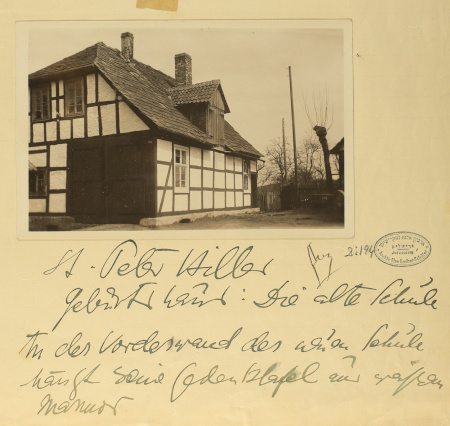 St. Peter Hiller
Geburtshaus: Die alte Schule
An der Vorderwand der neuen Schule
hängt seine Gedenktafel aus weissem
Marmor